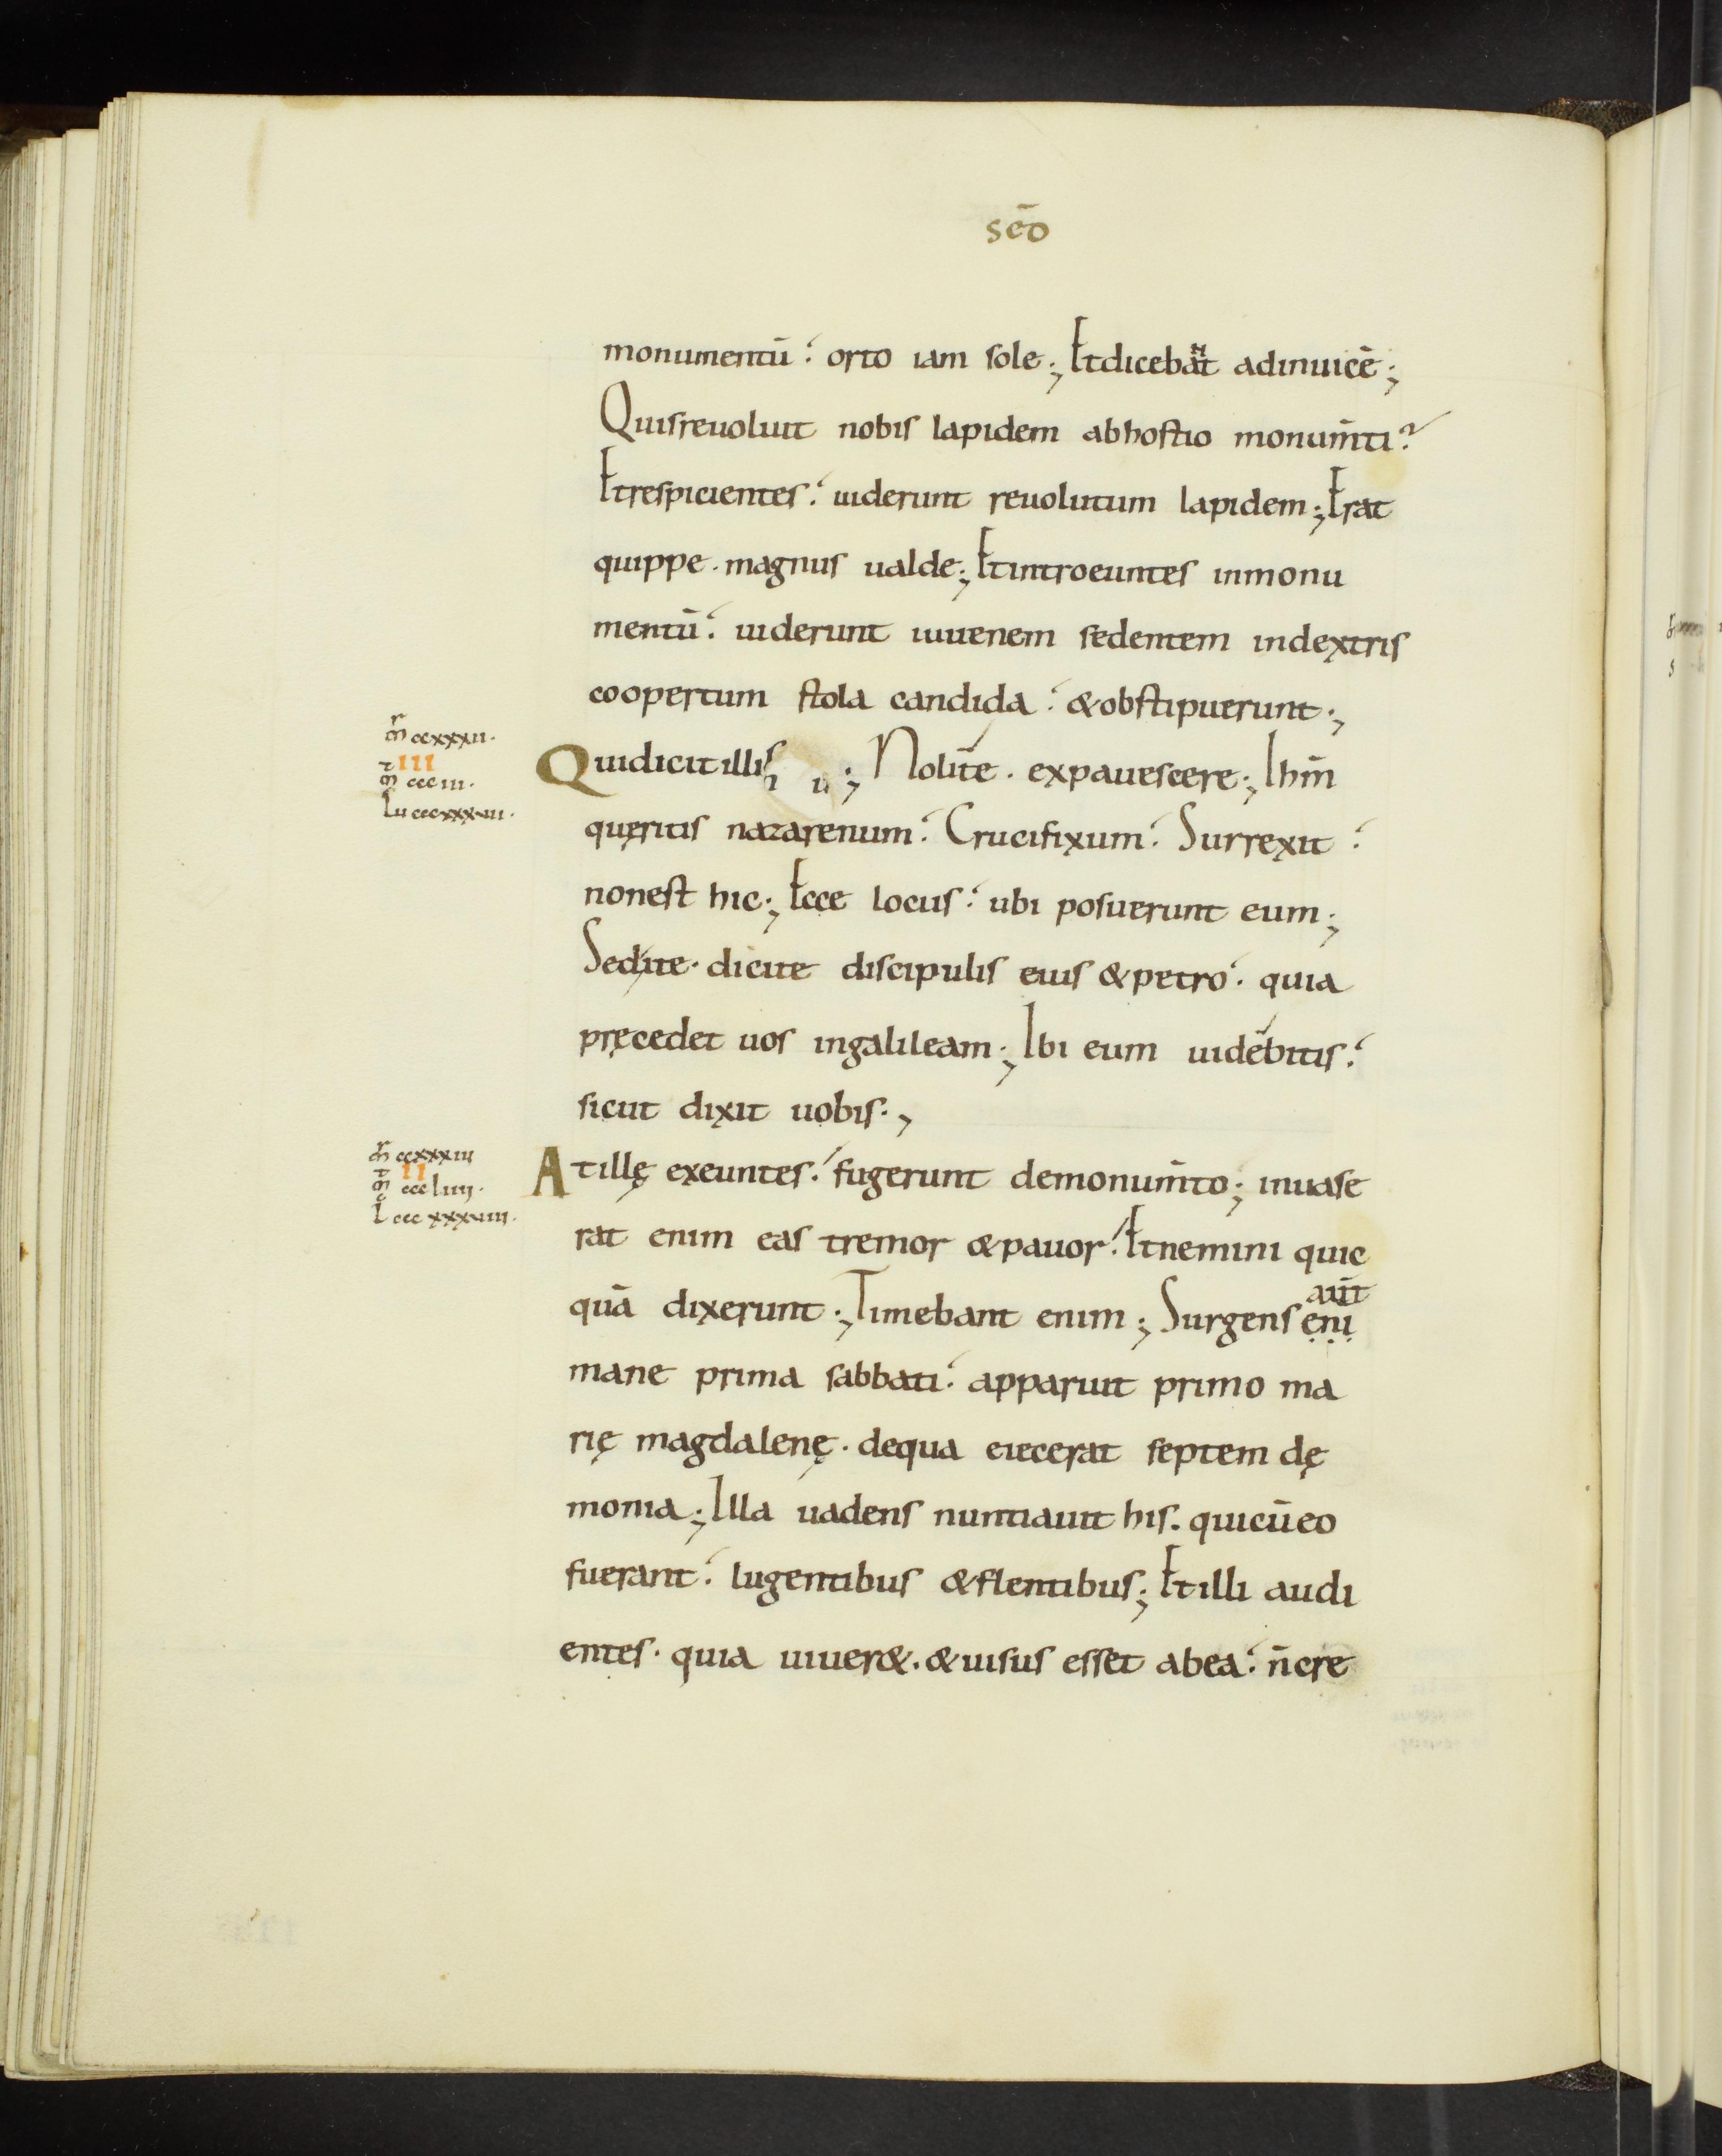 sēo
monumentū· orto iam sole; Etdicebant adinuicē;
Quisreuoluit nobis lapidem abhostio monum̄ti?
Etrespicientes· uiderunt reuolutum lapidem; Erat
quippe· magnus ualde; Etintroeuntes inmonu
mentū· uiderunt iuuenem sedentem indextris
coopertum stola candida· &obstipuerunt·,
mr̄ ccxxxii·
III
mt̄ ccciii·
Lu
Quidicitillis; Nolite· expauescere; Ihm̄
quęritis nazarenum· Crucifixum· Surrexit·
nonest hic; Ecce locus· ubi posuerunt eum;
Sedite· dicite discipulis eius &petro· quia
pręcedet uos ingalileam; Ibi eum uidebitis·
sicut dixit uobis·,
mr̄ ccxxxiii
II
mt̄ cccliiii·
L
Atillę exeuntes· fugerunt demonum̄to; inuase
rat enim eas tremor &pauor· Etnemini quic
quā dixerunt; Timebant enim; Surgens enī
aūt
mane prima sabbati· apparuit primo ma
rię magdalenę· dequa eiecerat septem dę
monia; Illa uadens nuntiauit his· quicūeo
fuerant· lugentibus &flentibus; Etilli audi
entes· quia uiuer&· &uisus esset abea· n̄cre